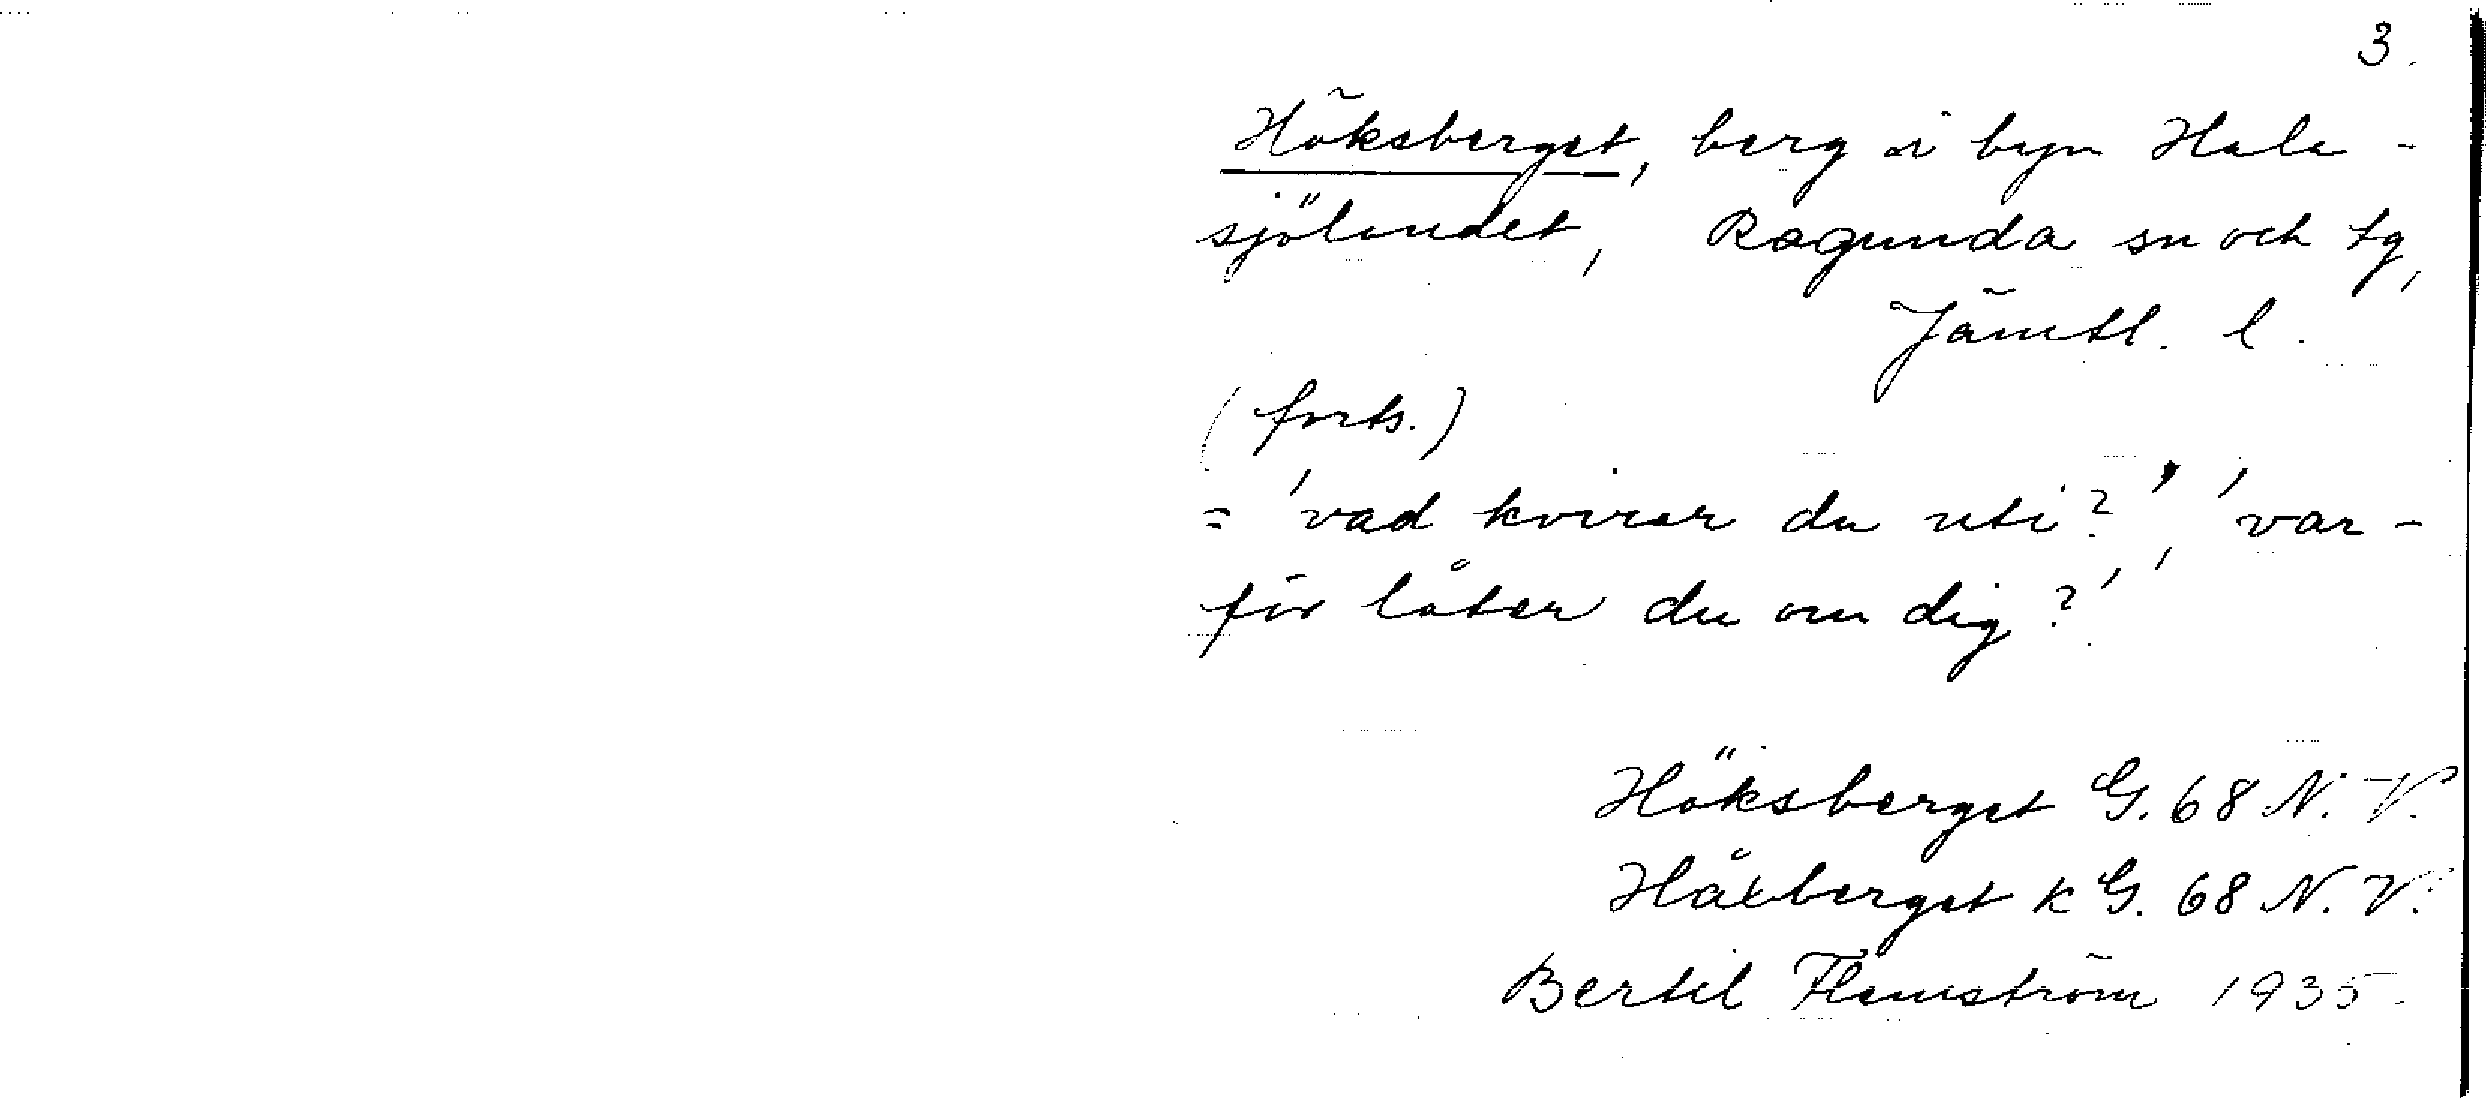 3.
Höksberget, berg i byn Hala-
sjölandet, Ragunda sn och tg,
Jämtl. l.
(forts.)
= 'vad kvirar du uti?', 'var-
för låter du om dig?'
Höksberget G. 68 N. V.
Håxberget k G. 68 N. V.
Bertil Flemström 1935.